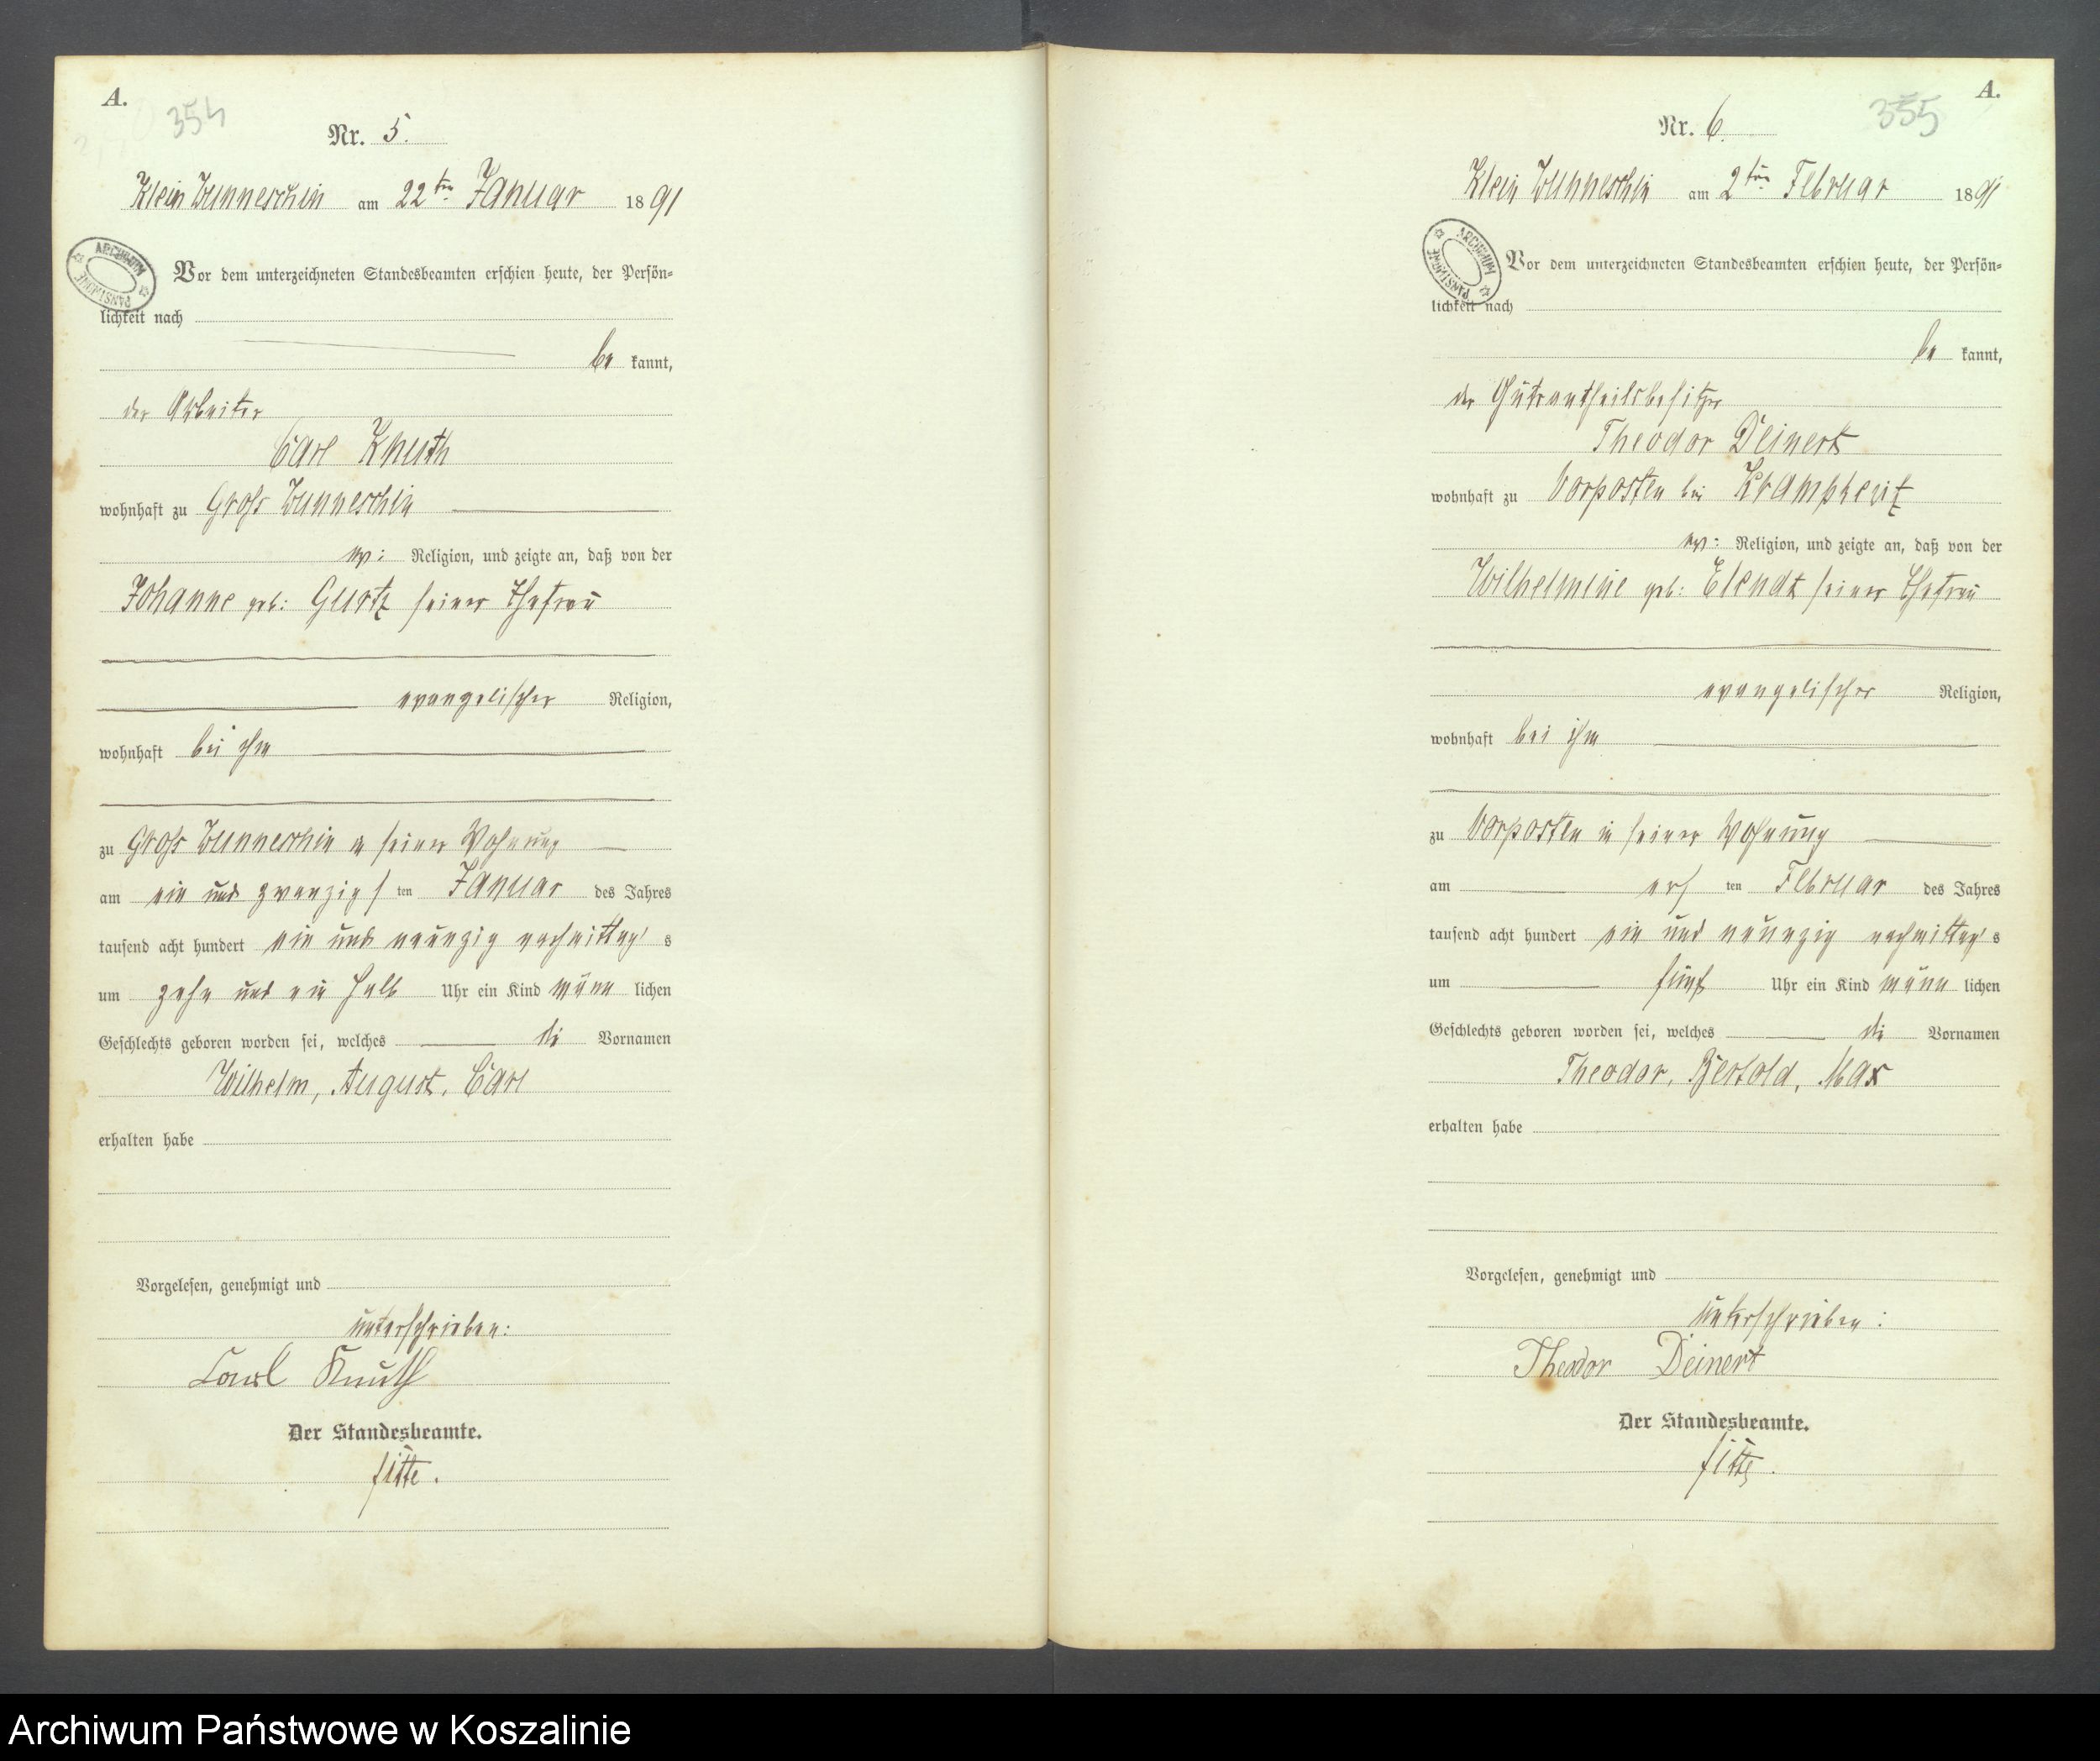 A.
354
Nr. 5.
Klein Wunneschin am 22ten Januar 1891
ARCHIWUM PAŃSTWOWE
Vor dem unterzeichneten Standesbeamten erschien heute, der Persön-
lichkeit nach
be kannt,
der Arbeiter
Carl Knuth
wohnhaft zu Groß Wunneschin
ev: Religion, und zeigte an, daß von der
Johanne geb: Gurtz seiner Ehefrau
evangelischer Religion,
wohnhaft bei ihm
zu Groß Wunneschin in seiner Wohnung
am ein und zwanzigsten Januar des Jahres
tausend acht hundert ein und neunzig nachmittags
um zehn und ein halb Uhr ein Kind männlichen
Geschlechts geboren worden sei, welches die Vornamen
Wilhelm, August, Carl
erhalten habe
Vorgelesen, genehmigt und
unterschrieben:
Carl Knuth
Der Standesbeamte.
A.
355
Nr. 6.
Klein Wunneschin am 2ten Februar 1891
ARCHIWUM PAŃSTWOWE
Vor dem unterzeichneten Standesbeamten erschien heute, der Persön-
lichkeit nach
be kannt,
der Gutsantheilsbesitzer
Theodor Deinert
wohnhaft zu Vorposten bei Krampkewitz
ev: Religion, und zeigte an, daß von der
Wilhelmine geb: Elendt seiner Ehefrau
evangelischer Religion,
wohnhaft bei ihm
zu Vorposten in seiner Wohnung
am ersten Februar des Jahres
tausend acht hundert ein und neunzig nachmittags
um fünf Uhr ein Kind männlichen
Geschlechts geboren worden sei, welches die Vornamen
Theodor, Bertold, Max
erhalten habe
Vorgelesen, genehmigt und
unterschrieben:
Theodor Deinert
Der Standesbeamte.
Archiwum Państwowe w Koszalinie